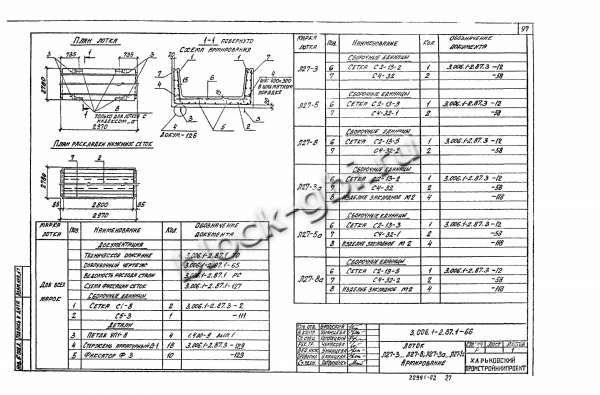 97
План лотка
1-1 повернуто
Схема армирования
735
1
735
3
3
2780
8
1
только для лотков с
индексом „а"
2970
7
6
7
15
4
4
шаг 100×300
в шахматном
порядке
3
4
5
Докум.-126
План раскладки нижних сеток
7
2
2780
85
2800
85
2970
Марка лотка
Поз
Наименование
Кол.
Обозначение документа
Документация
Техническое описание 3.006.1-2.87.1 ТО
Сборочный чертеж 3.006.1-2.87.1-65
Ведомость расхода стали 3.006.1-2.87.1 РС
Схема фиксации сеток 3.006.1-2.87.1-127
Для всех марок
Сборочные единицы
1 Сетка С1-8 2 3.006.1-2.87.3-2
2 С5-3 1 -111
Детали
3 Петля УП1-8 4 1.400-9 вып.1
4 Стержень арматурный В-1 18 3.006.1-2.87.3-129
5 Фиксатор Ф 3 10 -129
Марка лотка
Поз
Наименование
Кол
Обозначение документа
Сборочные единицы
Л27-3 6 Сетка С2-13-2 1 3.006.1-2.87.3-12
7 С4-32 2 -58
Сборочные единицы
Л27-5 6 Сетка С2-13-3 1 3.006.1-2.87.3-12
7 С4-32-1 2 -58
Сборочные единицы
Л27-8 6 Сетка С2-13-5 1 3.006.1-2.87.3-12
7 С4-32-2 2 -58
Сборочные единицы
Л27-3а 6 Сетка С2-13-2 1 3.006.1-2.87.3-12
7 С4-32 2 -58
8 Изделие закладное М2 4 -118
Сборочные единицы
Л27-5а 6 Сетка С2-13-3 1 3.006.1-2.87.3-12
7 С4-32-1 2 -58
8 Изделие закладное М2 4 -118
Сборочные единицы
Л27-8а 6 Сетка С2-13-5 1 3.006.1-2.87.3-12
7 С4-32-2 2 -58
8 Изделие закладное М2 4 -118
3.006.1-2.87.1-66
Лоток
Л27-3... Л27-8, Л27-3а... Л27-8а
Армирование
Харьковский
Промстройниипроект
22981-02 27
block-gbi.ru